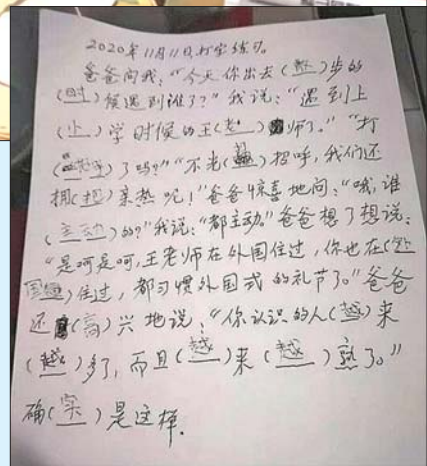 2020年11月11日,打字练习。
爸爸问我:“今天你出去( )步的
(时)候遇到谁了?”我说:“遇到上
(小)学时候的王(老)师了。”“打
( )了吗?”“不光( )招呼,我们还
拥(抱)亲热呢!”爸爸惊喜地问:“哦,谁
(主动)的?”我说:“都主动。”爸爸想了想说:
“是呵是呵,王老师在外国住过,你也在(外
国)住过,都习惯外国式的礼节了。”爸爸
还(高)兴地说:“你认识的人(越)来
(越)多了,而且(越)来(越)熟了。”
确(实)是这样.